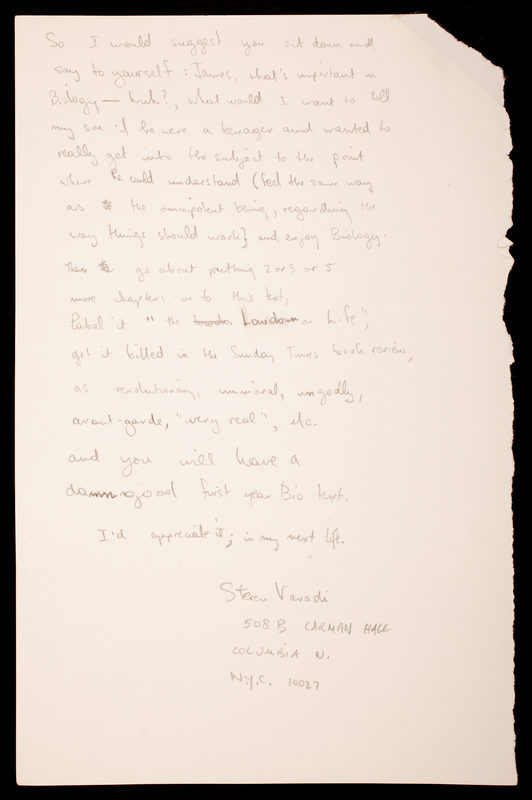 So I would suggest you sit down and
say to yourself: James, what's important in
Biology — huh?, what would I want to tell
my son if he were a teenager and wanted to
really get into the subject to the point
where he could understand (feel the same way
as the omnipotent being, regarding the
way things should work) and enjoy Biology.
Then go about putting 2 or 3 or 5
more chapters on to this text,
label it "the Lowdown on Life",
get it billed in the Sunday Times book review,
as revolutionary, immoral, ungodly,
avant-garde, "very real", etc.
and you will have a
damn good first year Bio text.
I'd appreciate it; in my next life.
Steven Varadi
508 B CARMAN HALL
COLUMBIA U.
N.Y.C. 10027